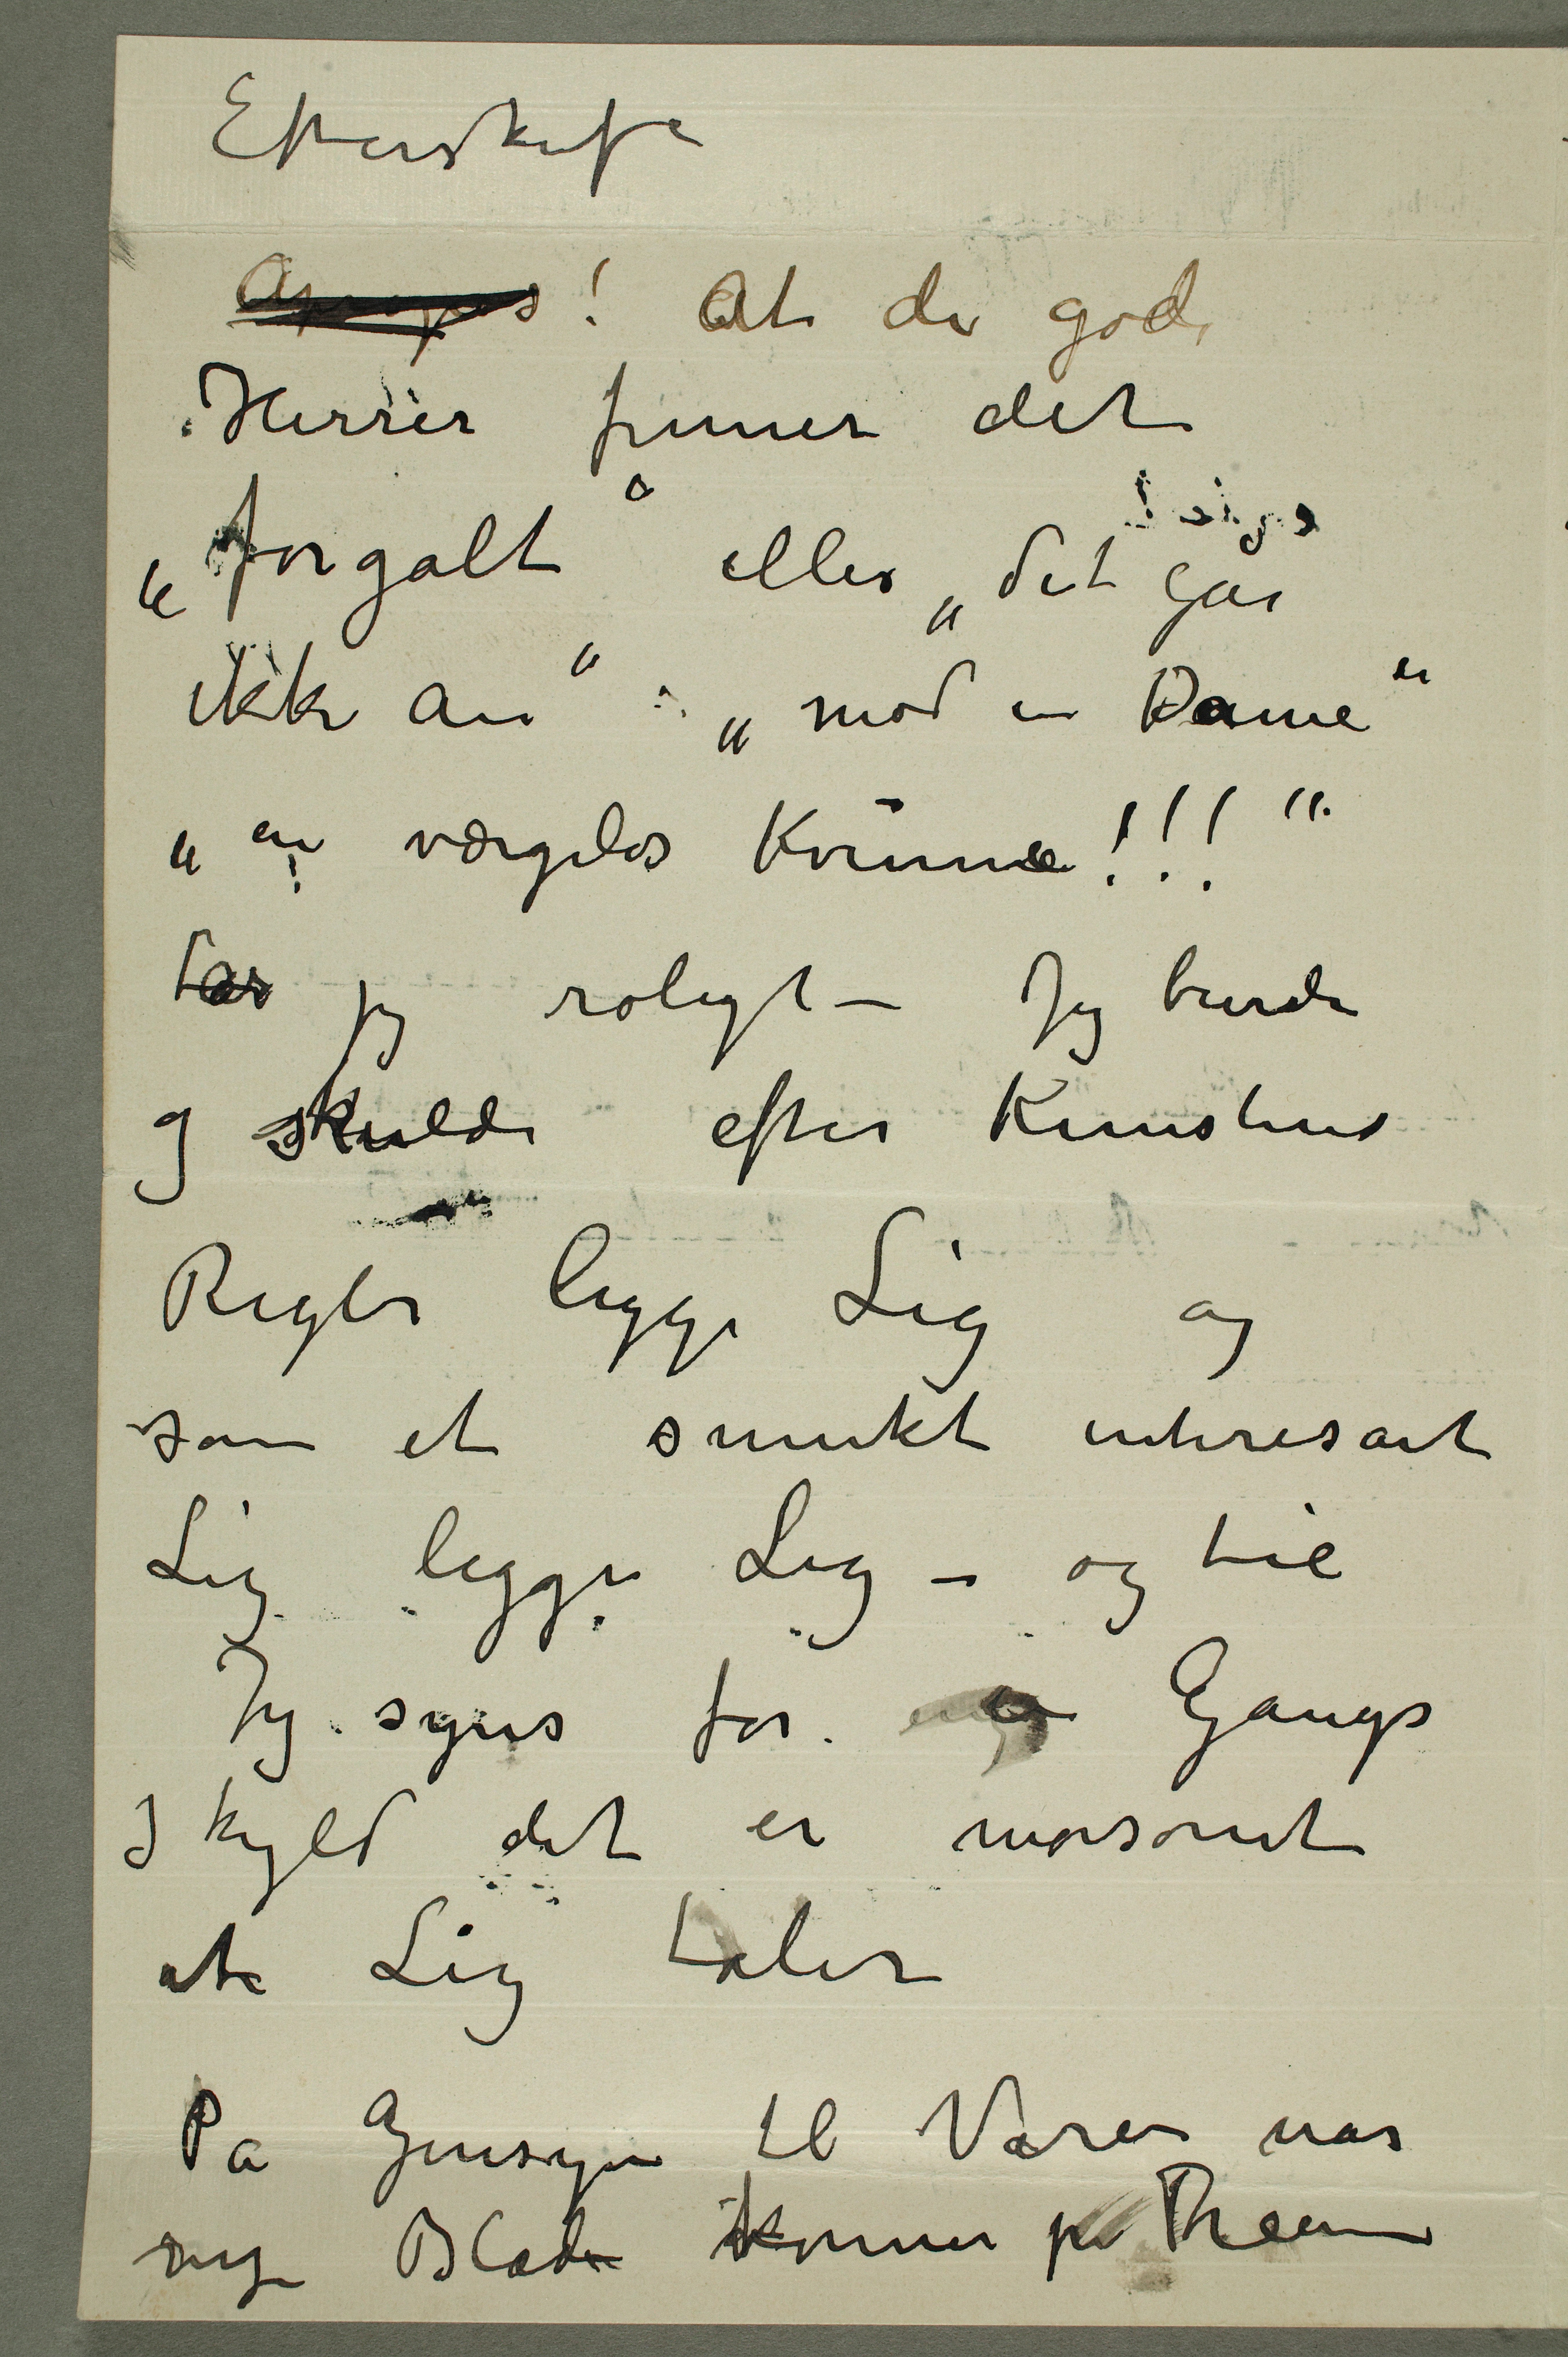 Efterskrift
Apropos! At de gode
Herrer finner det
„forgalt“ eller „det går
ikke an“ „mod en Dame“
„en værgeløs Kvinne!!!“
tar jeg roligt – Jeg burde
og skulde efter Kunstens
Regler ligge Lig og
som et smukt interesant
Lig ligge Lig – og tie
Jeg synes for en Gangs
skyld det er morsomt
at Lig taler
På Gensyn til Våren når
nye Blade kommer på Træerne